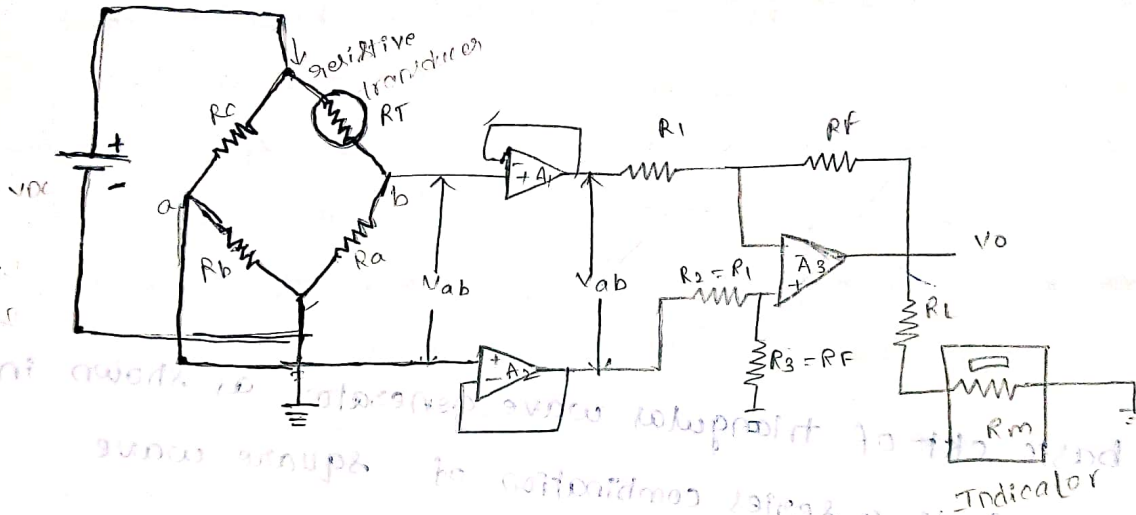 resistive
transducer
RT
Rc
+
-
VDC
a
b
Rb
Ra
Vab
Vab
- + A1
+ - A2
R1
RF
R2 = R1
A3
+
R3 = RF
Vo
RL
Rm
Indicator